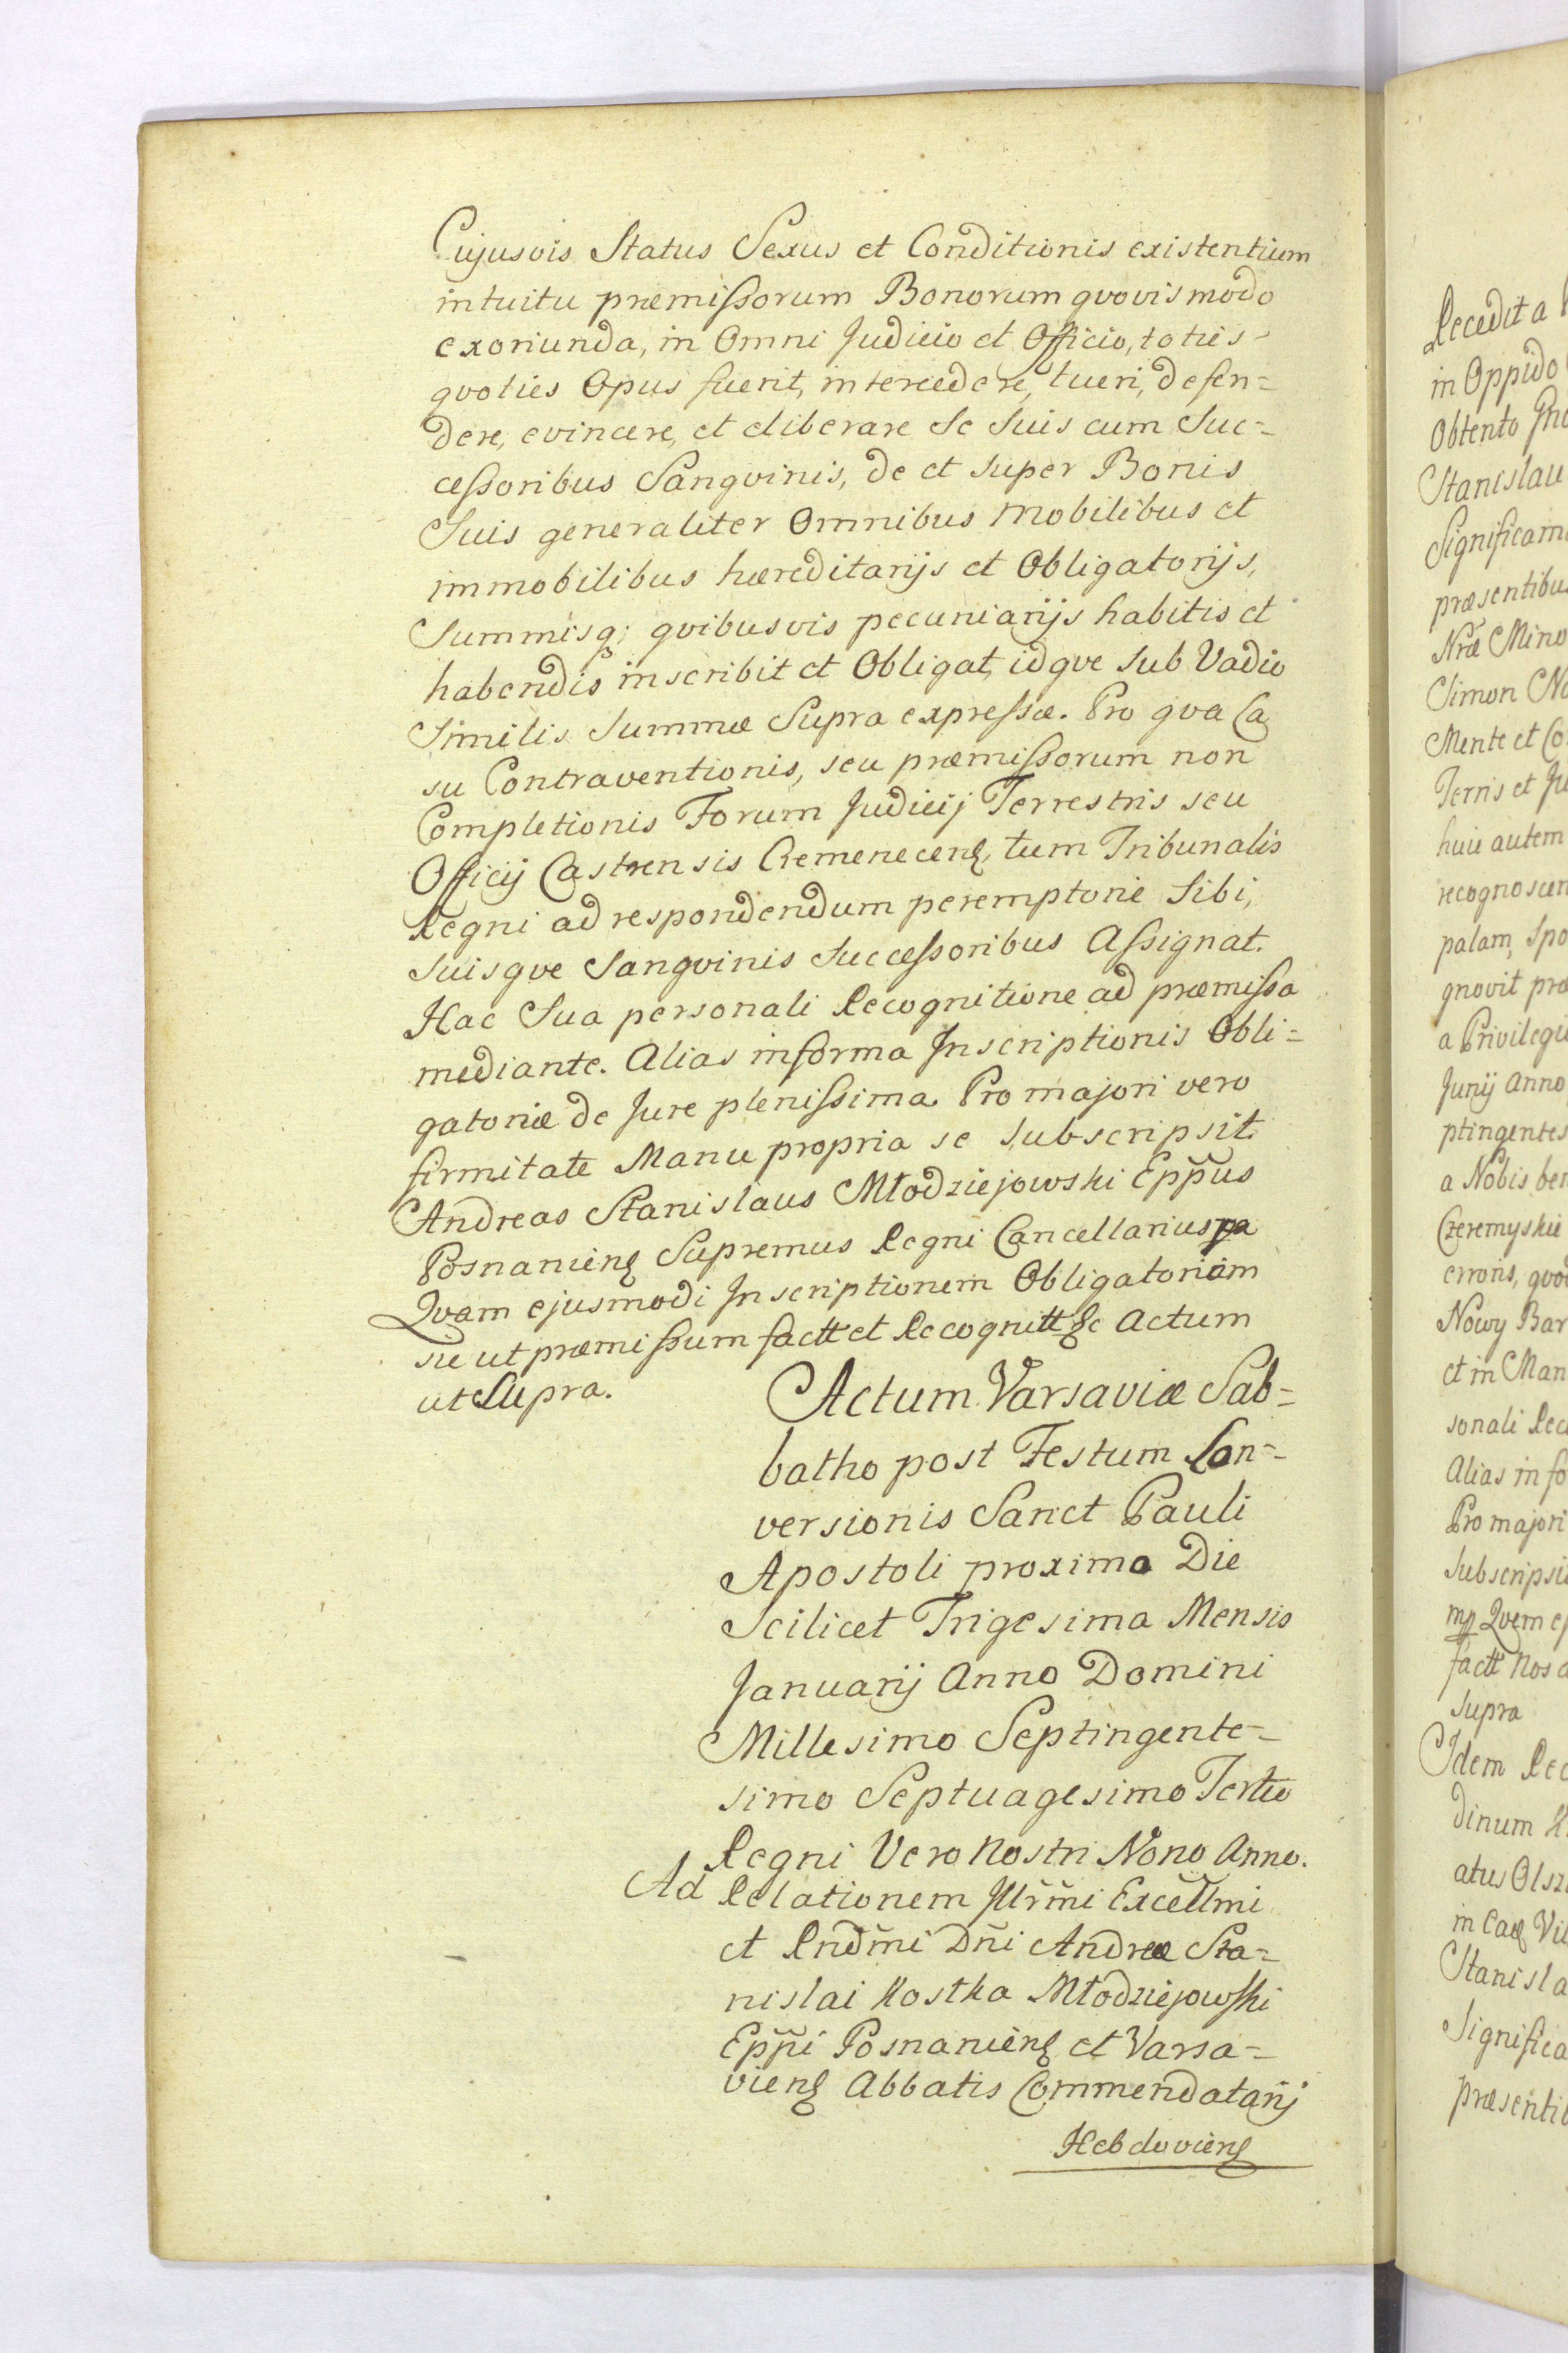 Cujusvis Status Sexus et Conditionis existentium
intuitu præmissorum Bonorum qvovis modo
exoriunda, in Omni Judicio et Officio, toties
qvoties Opus fuerit, intercedere, tueri, defen=
dere, evincere, et eliberare Se Suis cum Suc=
cessoribus Sangvinis, de et super Bonis
Suis generaliter Omnibus mobilibus et
immobilibus hæreditarijs et Obligatorijs,
Summisq; qvibusvis pecuniarijs habitis et
habendis inscribit et Obligat, idqve sub Vadio
Similis Summæ Supra expressæ. Pro qva Ca
su Contraventionis, seu præmissorum non
Completionis Forum Judicij Terrestris seu
Officij Castrensis Cremenecens, tum Tribunalis
Regni ad respondendum peremptorie Sibi,
suisqve Sangvinis Successoribus Assignat.
Hac Sua personali Recognitione ad præmissa
mediante. Alias in forma Inscriptionis Obli=
gatoriæ de Jure plenissima. Pro majori vero
firmitate Manu propria se subscripsit.
Andreas Stanislaus Młodziejowski Epp̃us
Posnaniens Supremus Regni Cancellarius
Qvam ejusmodi Inscriptionem Obligatoriam
sic ut præmissum factt et Recognitt &c Actum
ut Supra.
Actum Varsaviæ Sab=
batho post Festum Con=
versionis Sanct Pauli
Apostoli proximo Die
Scilicet Trigesima Mensis
Januarij Anno Domini
Millesimo Septingente=
simo Septuagesimo Tertio
Regni Vero Nostri Nono Anno.
Ad Relationem Illr̃mi Excell̃mi
et Rnd̃mi Dñi Andreæ Sta=
nislai Kostka Młodziejowski
Epp̃i Posnaniens et Varsa=
viens Abbatis Commendatarij
Hebdoviens
Recedit a
in Oppido
Obtento
Stanislau
Significam
præsentibus
Nræ Mino
Simon No
Mente et Co
Terris et Ju
huic autem
recognoscen
palam, Spo
gnovit præ
a Privilegi
Junij Anno
ptingentes
a Nobis ben
Czeremyskie
erroris, qvod
Nowy Bar
et in Man
sonali Rec
Alias in fo
Pro majori
Subscripsi
mp Qvem ej
factt Nos
Supra
Idem Rec
dinum
atus Olsz
in Vil
Stanisla
Significa
præsentib